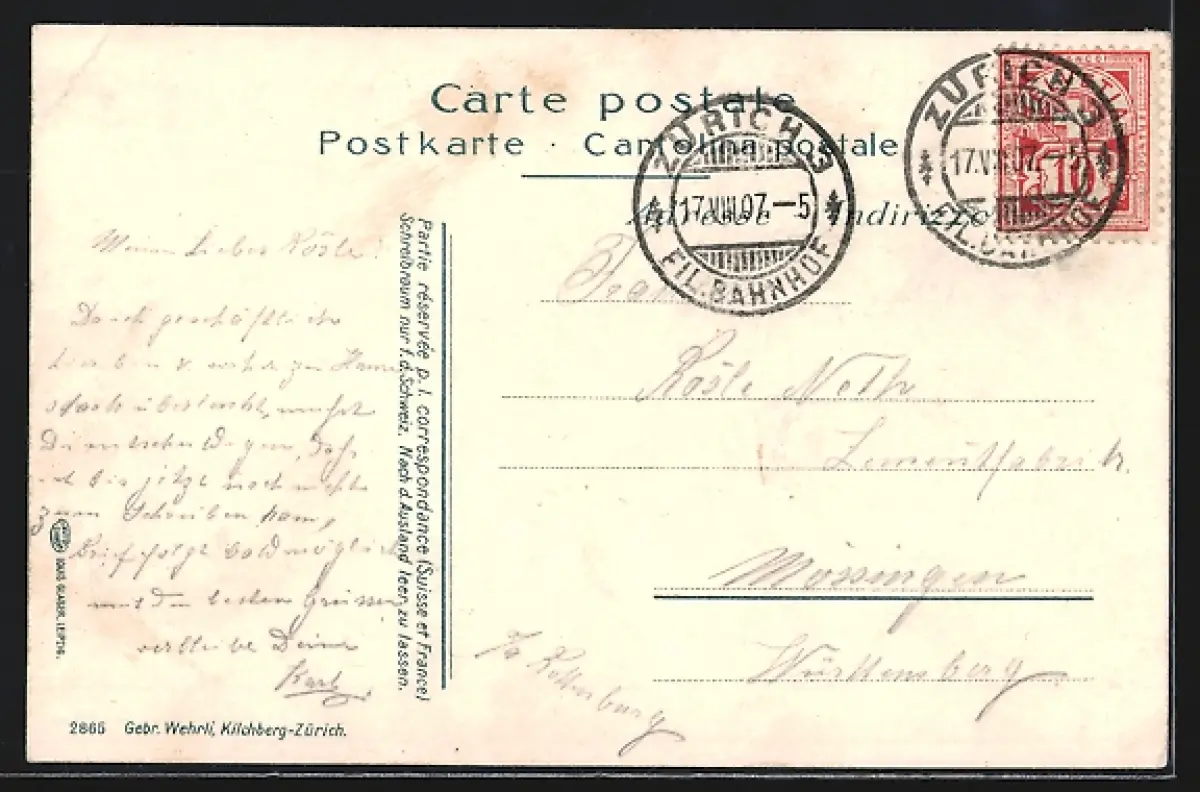 Carte postale
Postkarte · Cartolina postale
Adresse Indirizzo
ZÜRICH 3
17.VIII.07.-5
FIL. BAHNHOF
ZÜRICH 3
17.VIII.07.-5
FIL. BAHNHOF
10
Partie réservée p. l. correspondance (Suisse et France)
Schreibraum nur f. d. Schweiz. Nach d. Ausland leer zu lassen.
Meine Liebes Rösle!
Durch geschäftliche
zum
stark überlastet, 
Dich 
bis jetzt noch nicht
zum Schreiben kam,
Brief folgt baldmöglichst
mit den besten Grüssen
verbleibe Deine
Karl
Rösle Neth
Zementfabrik
Mössingen
Württemberg
Rottenburg
LOUIS GLASER, LEIPZIG.
2865 Gebr. Wehrli, Kilchberg-Zürich.